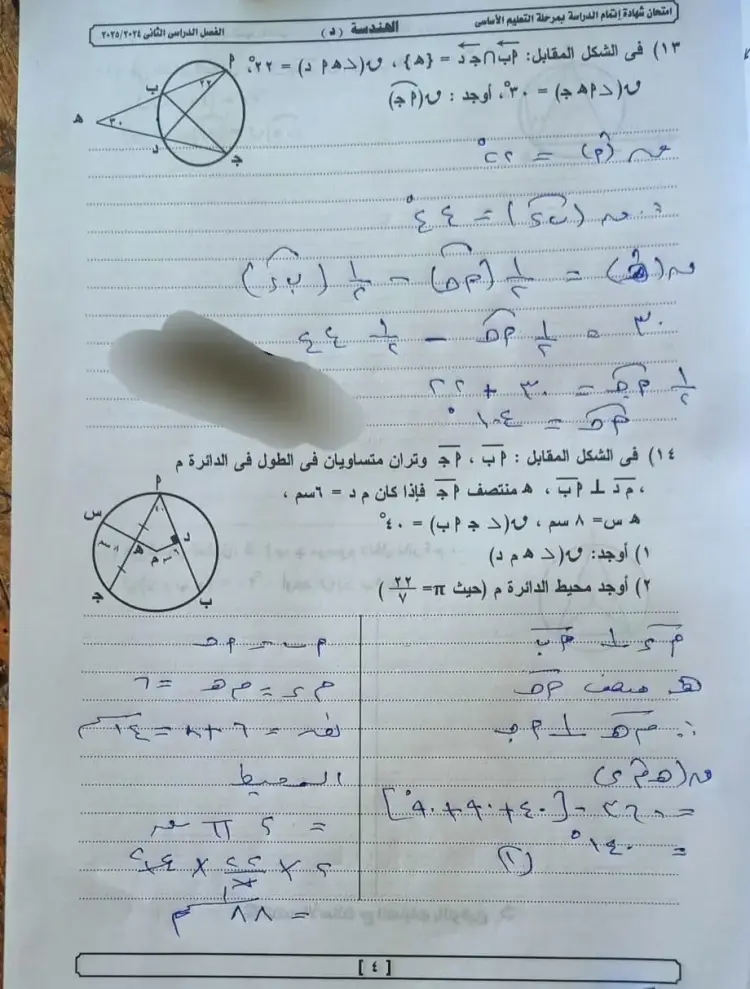 امتحان شهادة إتمام الدراسة بمرحلة التعليم الأساسى الهندسة (د) الفصل الدراسى الثانى ٢٠٢٥/٢٠٢٤
١٣) فى الشكل المقابل: أب ∩ جد = {هـ} ، ق(∠هـ أ د) = ٢٢°،
ق(∠أ هـ جـ) = ٣٠°، أوجد : ق(أ جـ)
أ
٢٢
ب
هـ
٣٠
د
جـ
ق (أ) = ٢٢°
∴ ق (ب د) = ٤٤°
ق (هـ) = ١/٢ (أ جـ) − ١/٢ (ب د)
٣٠ = ١/٢ أ جـ − ١/٢ ٤٤
١/٢ أ جـ = ٣٠ + ٢٢
أ جـ = ١٠٤°
١٤) فى الشكل المقابل : أب ، أجـ وتران متساويان فى الطول فى الدائرة م
، م د ⊥ أب ، هـ منتصف أجـ فإذا كان م د = ٦سم ،
هـ س= ٨ سم ، ق(∠ جـ أ ب) = ٤٠°
١) أوجد: ق(∠ هـ م د)
٢) أوجد محيط الدائرة م (حيث π= ٢٢/٧ )
أ
س
د
هـ
م
جـ
ب
م د ⊥ أ ب
هـ منتصف أ جـ
∴ م هـ ⊥ أ جـ
ق (هـ م د)
= ٣٦٠ - [٤٠ + ٩٠ + ٩٠]
= ١٤٠° (١)
أ ب = أ جـ
م د = م هـ = ٦
نق = ٦ + ٨ = ١٤ سم
المحيط
= ٢ π نق
٢ × ٢٢/٧ × ١٤
= ٨٨ سم
[ ٤ ]